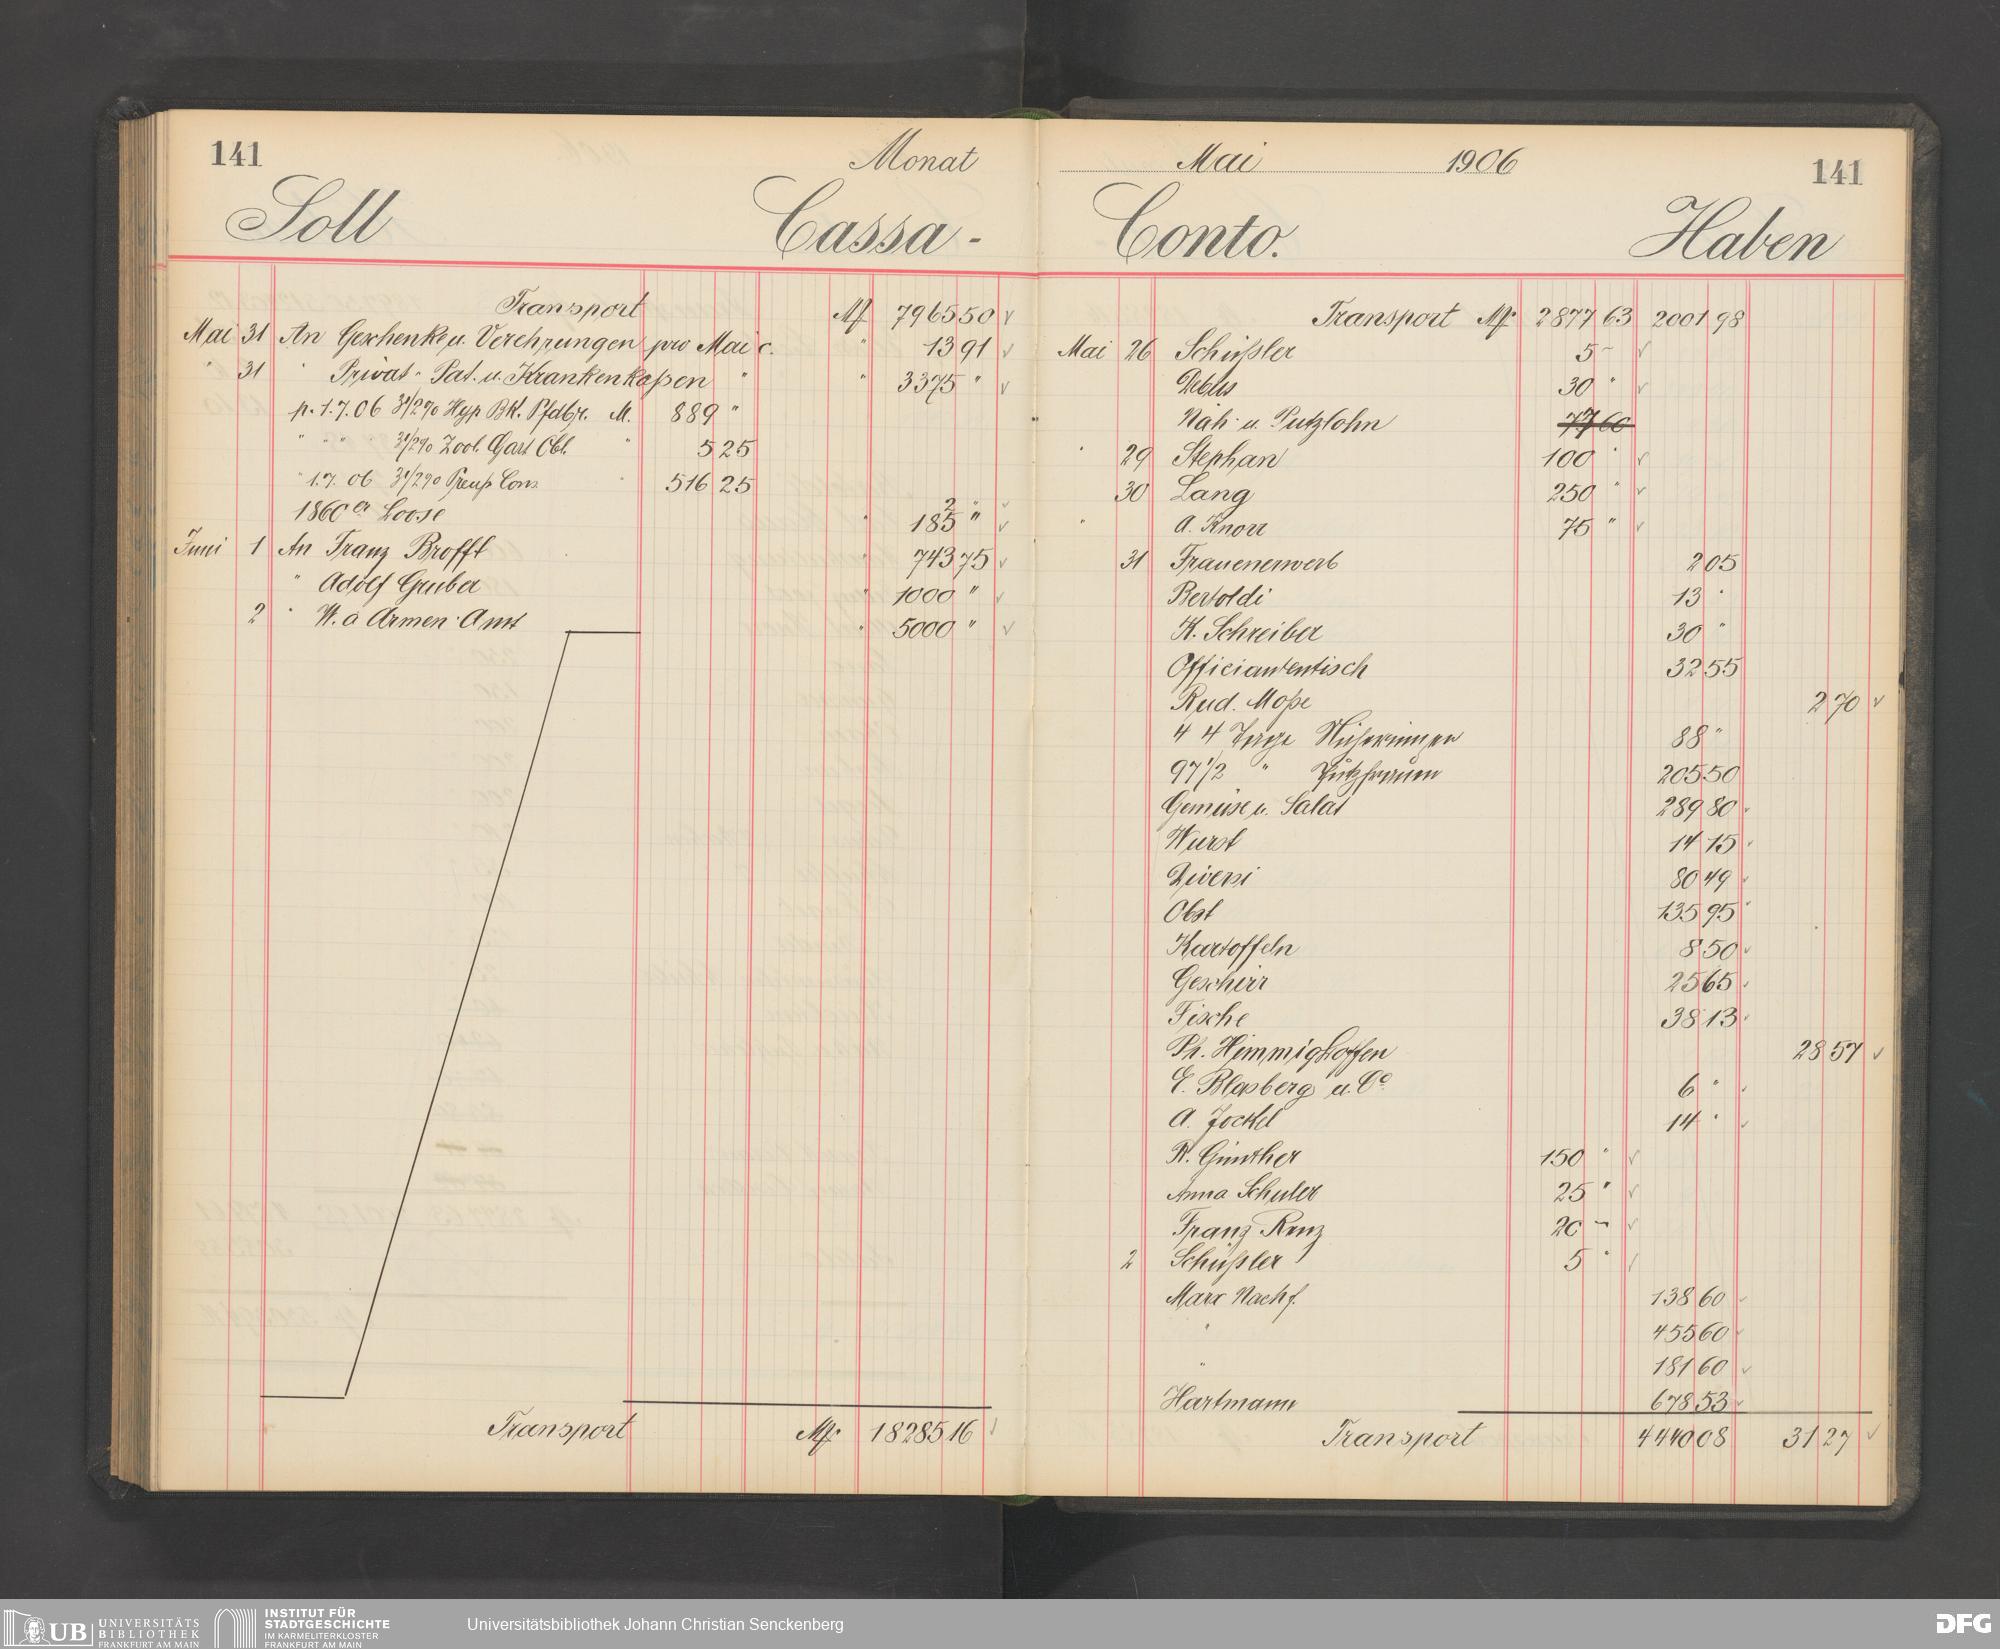 141
Monat
Soll
Cassa-
Transport M 7965 50
Mai 31 An Geschenke u. Verehrungen pro Mai c. " 13 91
" 31 " Privat-Pat. u. Krankenkaßen " " 3375 "
p. 1.7.06 3 1/2 % Hyp Bk. Pfdbfr. M. 889 "
" " " 3 1/2 % Zool. Gart Obl. " 5 25
" 1.7.06 3 1/2 % Preuß Cons " 516 25
2 "
1860er Loose " 185 "
Juni 1 An Franz Brofft " 743 75
" Adolf Gruber " 1000 "
2 " W. a Armen-Amt " 5000 "
Transport M. 18285 16
Mai 1906
141
Conto.
Haben
Transport M. 2877 63 2001 98
Mai 26 Schüßler 5 -
Debus 30 "
" Näh- u. Putzlohn 77 60
" 29 Stephan 100 "
30 Lang 250 "
" A. Knorr 75 "
31 Frauenerwerb 2 05
Bertoldi 13 "
K. Schreiber 30 "
Officiantentisch 32 55
Rud. Moße 2 70
44 Tage Näherinnen 88 "
97 1/2 " Putzfrauen 205 50
Gemüse u. Salat 289 80
Wurst 14 15
Diversi 80 49
Obst 135 95
Kartoffeln 8 50
Geschirr 25 65
Fische 38 13
Ph. Himmighoffen 28 57
E. Blasberg u. Co 6 "
A. Jockel 14 "
R. Günther 150 "
Anna Schuler 25 "
Franz Renz 20 -
2 Schüßler 5 "
Marx Nachf. 138 60
" 455 60
" 181 60
Hartmann 678 53
Transport 4440 08 31 27
UB UNIVERSITÄTS
BIBLIOTHEK
FRANKFURT AM MAIN
INSTITUT FÜR
STADTGESCHICHTE
IM KARMELITERKLOSTER
FRANKFURT AM MAIN
Universitätsbibliothek Johann Christian Senckenberg
DFG